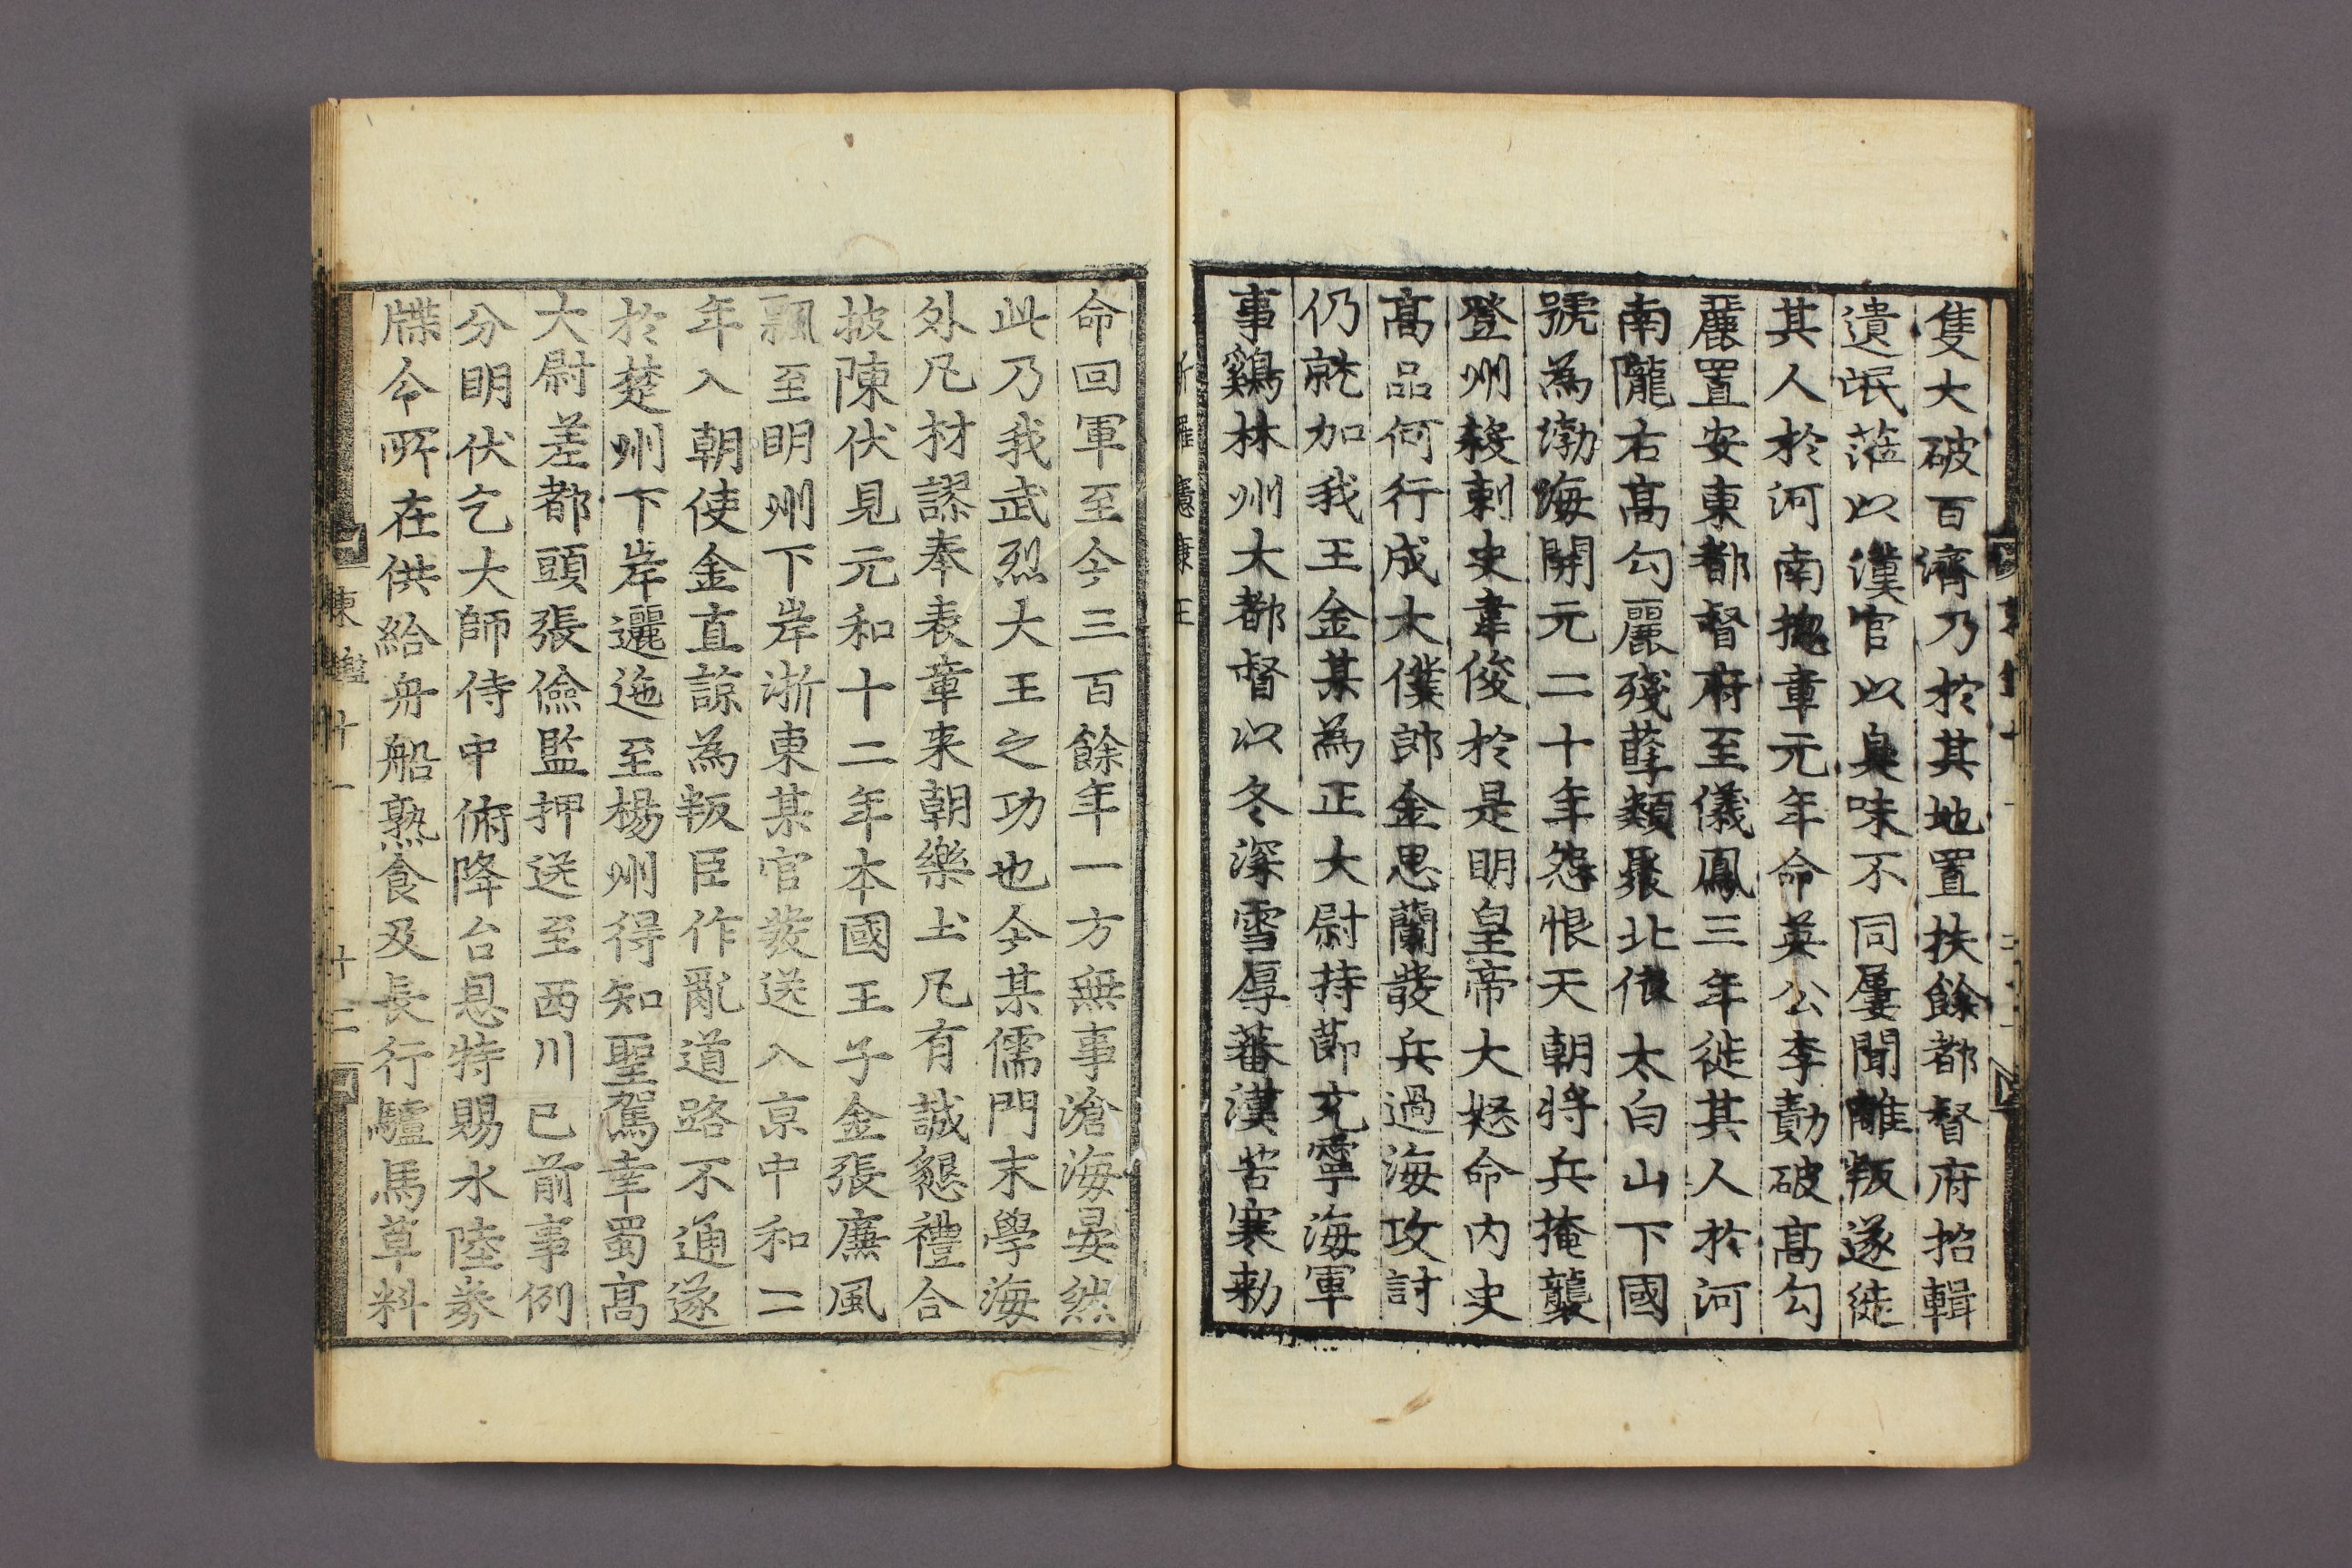 隻大破百濟乃於其地置扶餘都督府招輯
遺氓蒞以漢官以臭味不同屢聞離叛遂徙
其人於河南揔章元年命英公李勣破高勾
麗置安東都督府至儀鳳三年徙其人於河
南隴右高勾麗殘孽類聚北依太白山下國
號為渤海開元二十年怨恨天朝將兵掩襲
登州殺刺史韋俊於是明皇帝大怒命內史
高品何行成大僕郎金思蘭發兵過海攻討
仍就加我王金某為正大尉持節充寧海軍
事鷄林州大都督以冬深雪厚蕃漢苦寒勑
新羅憲康王
命回軍至今三百餘年一方無事滄海晏然
此乃我武烈大王之功也今某儒門末學海
外凡材謬奉表章来朝樂土凡有誠懇禮合
披陳伏見元和十二年本國王子金張廉風
飄至明州下岸浙東某官發送入京中和二
年入朝使金直諒為叛臣作亂道路不通遂
於楚州下岸邐迤至楊州得知聖駕幸蜀高
大尉差都頭張儉監押送至西川已前事例
分明伏乞大師侍中俯降台恩特賜水陸券
牒令所在供給舟船熟食及長行驢馬草料
東鑑十一
十二